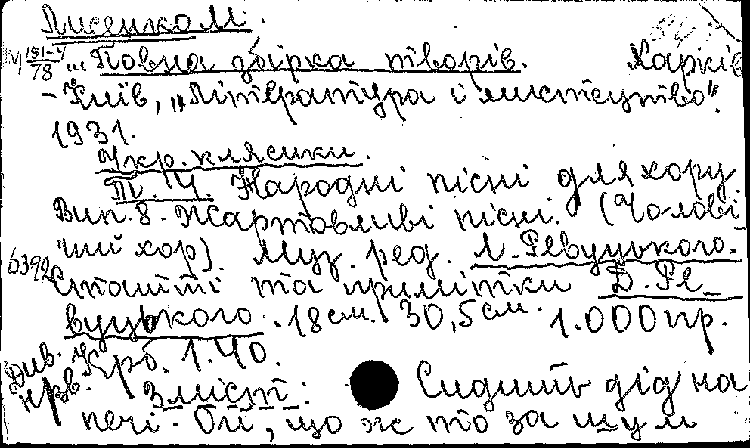 Лисенко М.
М 151-V/78 ... Повна збірка творів. Харків
- Київ, „Література і мистецтво".
1931.
Укр. клясики.
Т. IV. Народні пісні для хору
Вип. 8. Жартовливі пісні. (Чолові
чий хор). Муз. ред. Л. Ревуцького.
6392 Статті та примітки Д. Ре_
вуцького. 18 см. 30,5 см. 1.000 пр.
Крб. 1.40.
Див. нрв. Зміст: Сидить дід на
печі - Ой, що ж то за шум